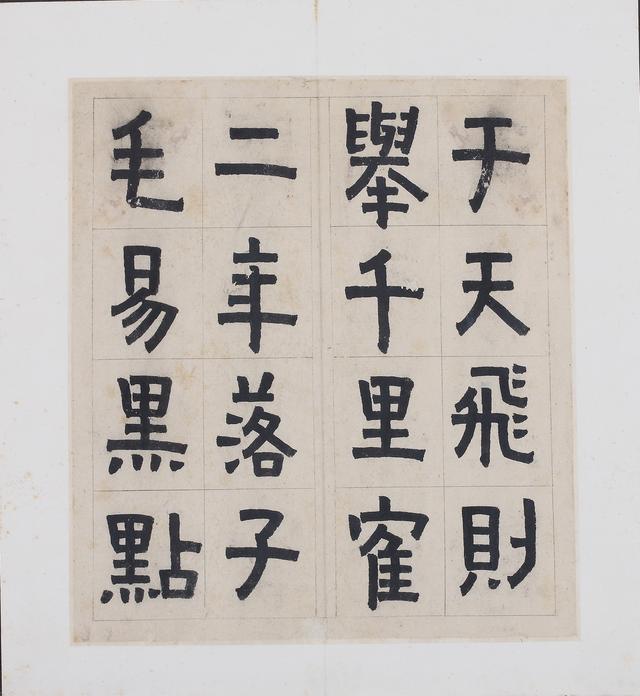 于天飛則
舉千里寉
二年落子
毛易黑點